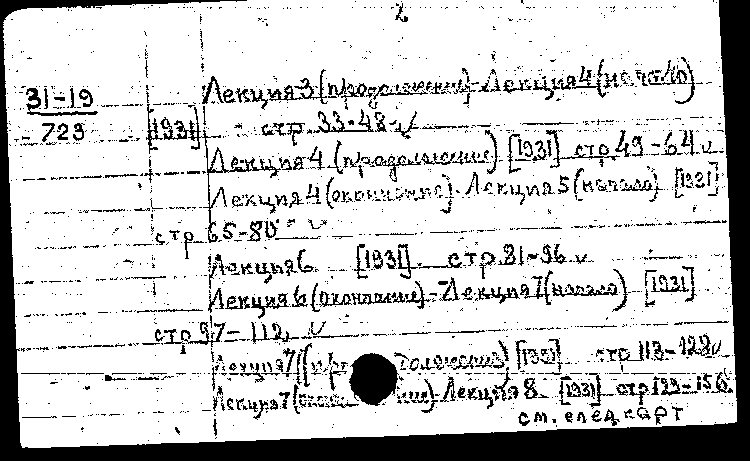 2
31-19
723
Лекция 3 (продолжение)-Лекция 4 (начало)
[1931] стр. 33-48
Лекция 4 (продолжение) [1931] стр. 49-64
Лекция 4 (окончание). Лекция 5 (начало) [1931]
стр 65-80
Лекция 6 [1931] стр. 81-96
Лекция 6 (окончание)-Лекция 7 (начало) [1931]
стр 97-112
Лекция 7 [1931] стр 113-128
Лекция 7 Лекция 8 [1931] стр 129-156
см. след карт